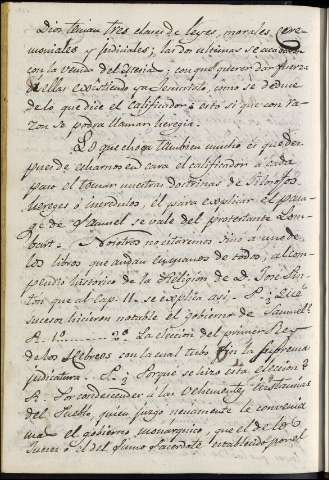 Dios tenian tres clases de leyes, morales, cere-
moniales y judiciales; las dos ultimas se acabaron
con la venida del Mesias; conque querer dar fuerza
à ellas existiendo ya Jesucristo, como se deduce
de lo que dice el Calificador, esto si que con ra-
zon se podra llamar heregia.
Lo que choca tambien mucho es que des-
pues de echarnos en cara el calificador à cada
paso el tomar nuestras doctrinas de Filosofos
Hereges ò incredulos, el para explicar el pasa-
ge de Samuel se vale del protestante Lom-
bart. Nosotros no citaremos sino à uno de
los libros que andan en manos de todos, al Com-
pendio historico de la Religion de D. Josè Pin-
ton que al Cap. 11. se explica asi. P. ¿Què
sucesos hicieron notable el gobierno de Samuel?
R. 1º ........ 2º La eleccion del primer Rey
de los Hebreos con la cual tubo fin la suprema
judicatura. P. ¿Porquè se hizo esta eleccion?
R. Por condescender à las vehementes instancias
del Pueblo, quien juzgò neciamente le convenia
mas el gobierno monarquico, que el de los
Jueces ò el del Sumo Sacerdote establecido por el